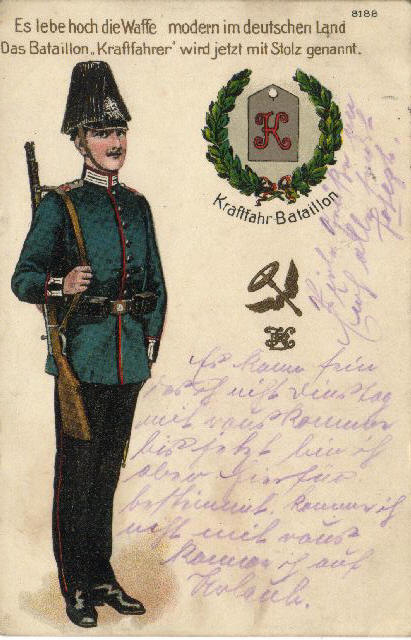 8188
Es lebe hoch die Waffe modern im deutschen Land
Das Bataillon „Kraftfahrer" wird jetzt mit Stolz genannt.
K
Kraftfahr-Bataillon
K
Es kann sein
das ich nicht Dinstag
mit raus komme
bis jetzt bin ich
aber hierfür
bestimmt. komme ich
nicht mit raus
komme ich auf
Urlaub.